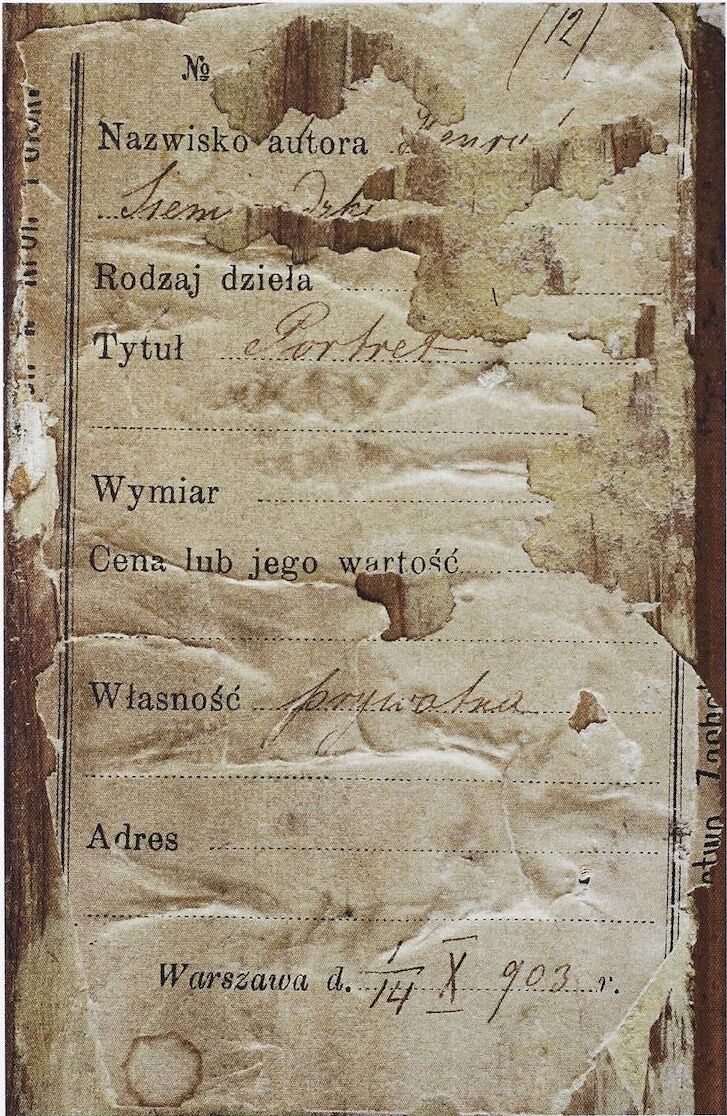 (12)
№
Nazwisko autora Henry
Siem dzki
Rodzaj dzieła
Tytuł Portret
Wymiar
Cena lub jego wartość
Własność prywatna
Adres
Warszawa d. 1/14 X 903 r.